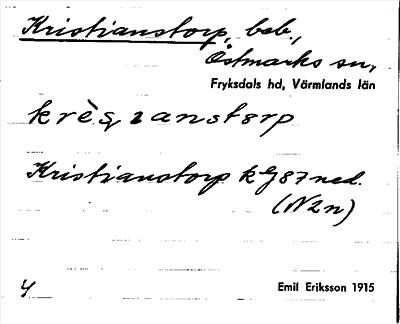 Kristianstorp, beb.,
Östmarks sn,
Fryksdals hd, Värmlands län
Kristianstorp kG87 ned.
(N2n)
4
Emil Eriksson 1915